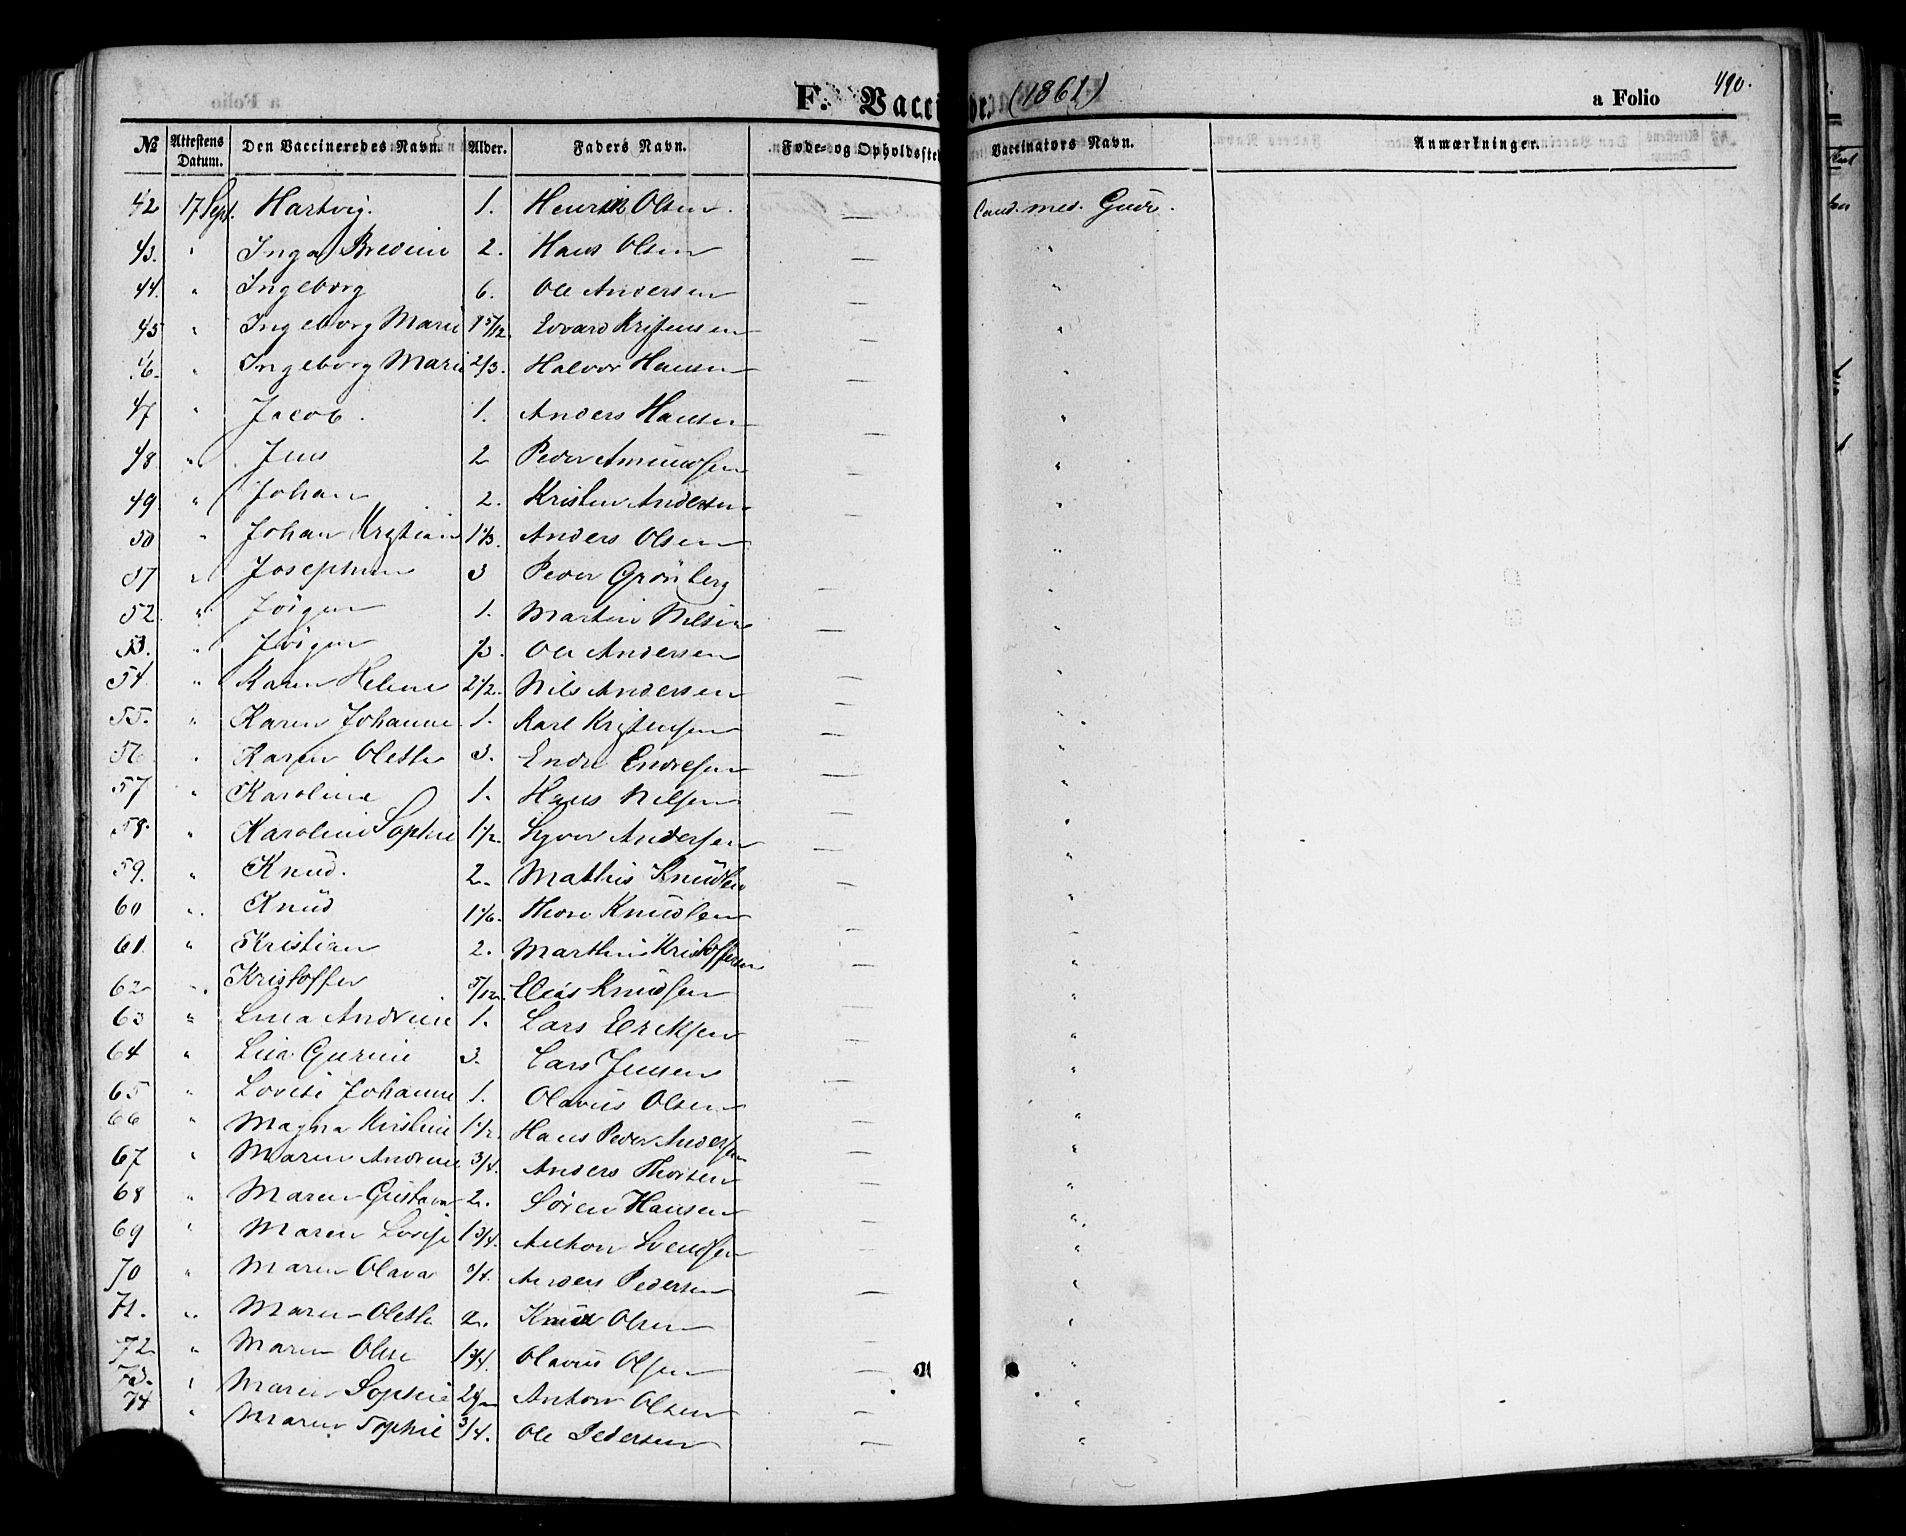 F. Vacci de. (1861) a Folio 490.
№ Attestens Datum. Den Vaccineredes Navn. Alder. Faders Navn. Føde- og Opholdsste Vaccinators Navn. Anmærkninger.
42 17 Sept. Hartvig. 1. Henrik Olsen. — Cand. med.
43. " Inga 2. Hans Olsen — "
44. " Ingeborg 6. Ole Andersen — "
45 " Ingeborg Marie 1 5/12. Edvard Kristensen — "
46. " Ingeborg Marie 2/3. Halvor Hansen — "
47 " Jacob. 1. Anders Hansen — "
48 " Jens 2 Peder Amundsen — "
49 " Johan 2. Kristen Andersen — "
50 " Johan Kristian 1 1/3. Anders Olsen — "
51 " Josephine 3 Peder Grönberg — "
52 " Jörgen 1. Martin Nilsen — "
53. " Jörgen 1/3. Ole Andersen — "
54 " Karen Helene 2 1/2. Nils Andersen — "
55. " Karen Johanne 1. Karl Kristensen — "
56 " Karen Olette 3. Endre Endresen — "
57 " Karoline 1. Hans Nilsen — "
58. " Karoline Sophie 1 1/2. Syver Andersen — "
59. " Knud. 2. Mathis Knudsen — "
60 " Knud 1 1/6. Thore Knudsen — "
61. " Kristian 2. Marthin Kristoffersen — "
62 " Kristoffer 5/12. Elias Knudsen — "
63 " Lina Andrine 1. Lars Eriksen — "
64 " Lina Gurine 3. Lars Jensen — "
65 " Lovise Johanne 1. Olavus Olsen — "
66 " Magna Kirstine 1 1/2. Hans Peder Andersen — "
67 " Maren Andrine 3/4. Anders Thorsen — "
68 " Maren Gustava 2. Sören Hansen — "
69 " Maren Lovise 1 3/4. Anton Svendsen — "
70 " Maren Olava 3/4. Anders Pedersen — "
71. " Maren Olette 2. Knud Olsen — "
72 " Maren Olise 1 3/4. Olavus Olsen — "
73. " Maren Sophie Anton Olsen — "
74 " Maren Sophie 3/4. Ole Pedersen — "